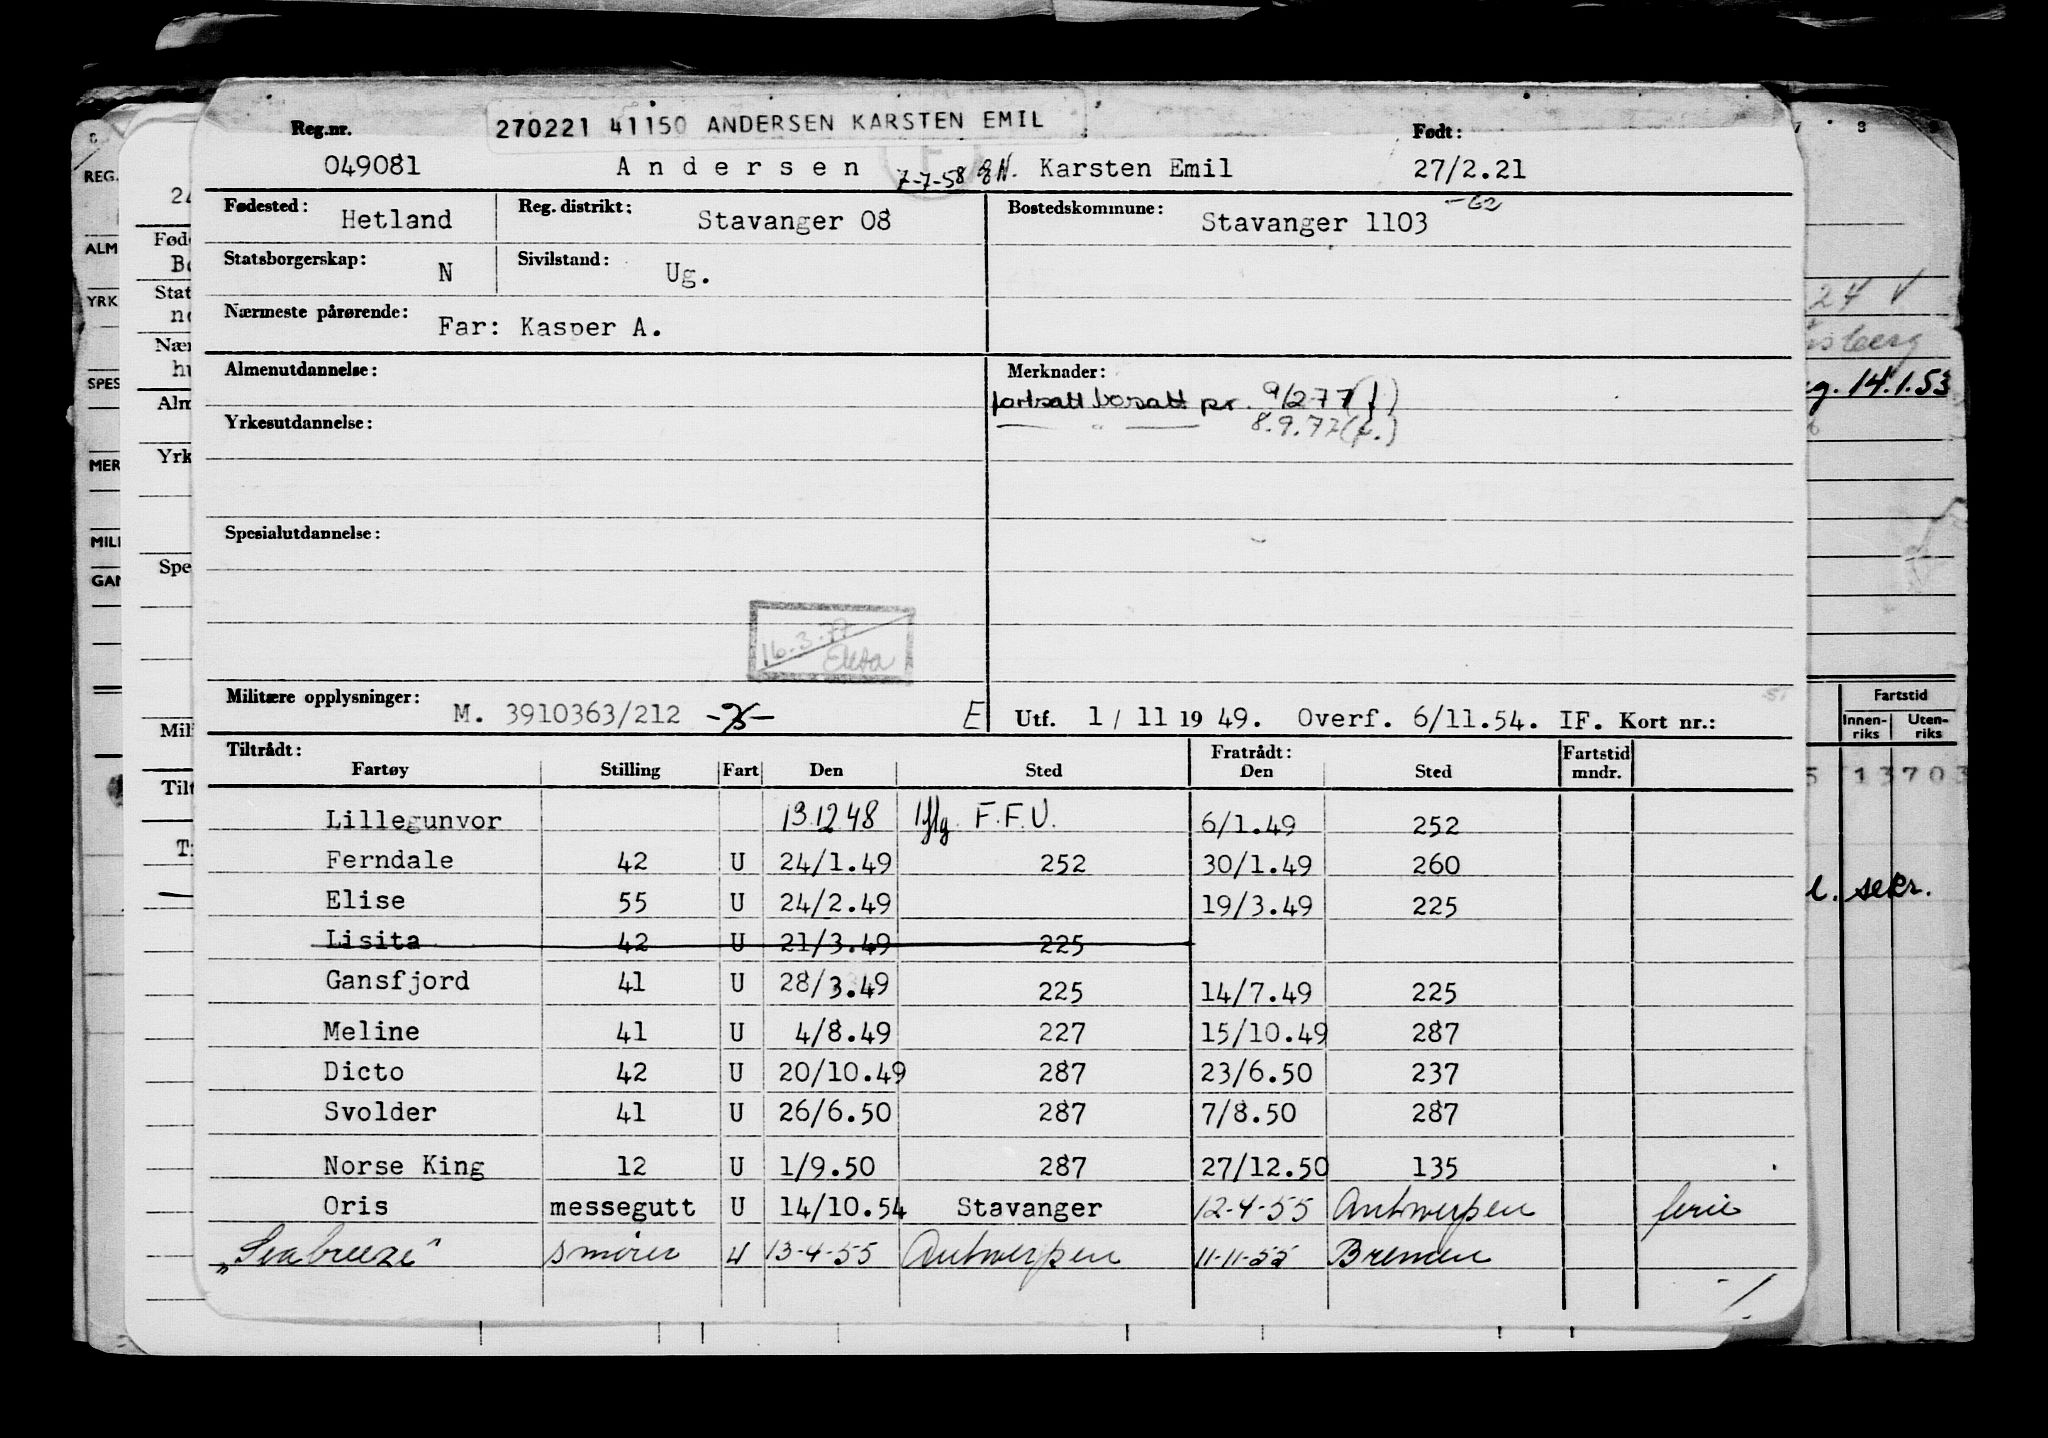 270221 41150 ANDERSEN KARSTEN EMIL
Reg.nr. Født:
049081 Andersen 7-7-58 Karsten Emil 27/2.21
Fødested: Hetland Reg. distrikt: Stavanger 08 Bostedskommune: Stavanger 1103 -62
Statsborgerskap: N Sivilstand: Ug.
Nærmeste pårørende: Far: Kasper A.
Almenutdannelse: Merknader:
fortsatt bosatt pr. 9/2-77
Yrkesutdannelse: 8.9.77
Spesialutdannelse:
16.3.77
Militære opplysninger: M. 3910363/212 E Utf. 1/11 1949. Overf. 6/11.54. IF. Kort nr.:
Tiltrådt: Fratrådt: Fartstid
Fartøy Stilling Fart Den Sted Den Sted mndr.
Lillegunvor 13.12 48 Iflg. F.F.U. 6/1.49 252
Ferndale 42 U 24/1.49 252 30/1.49 260
Elise 55 U 24/2.49 19/3.49 225
Lisita 42 U 21/3.49 225
Gansfjord 41 U 28/3.49 225 14/7.49 225
Meline 41 U 4/8.49 227 15/10.49 287
Dicto 42 U 20/10.49 287 23/6.50 237
Svolder 41 U 26/6.50 287 7/8.50 287
Norse King 12 U 1/9.50 287 27/12.50 135
Oris messegutt U 14/10.54 Stavanger 12-4-55 Antwerpen ferie
"Seabreeze" smører U 13-4-55 Antwerpen 11-11-55 Bremen
REG.
ALM
YRK
SPES
MER
MILI
GAN
Fød
Stat
Nær
Alm
Yrk
Spe
Mil
Tilt
24
sberg
g. 14.1.53
Fartstid
Innen-riks Uten-riks
5 13703
l. sekr.